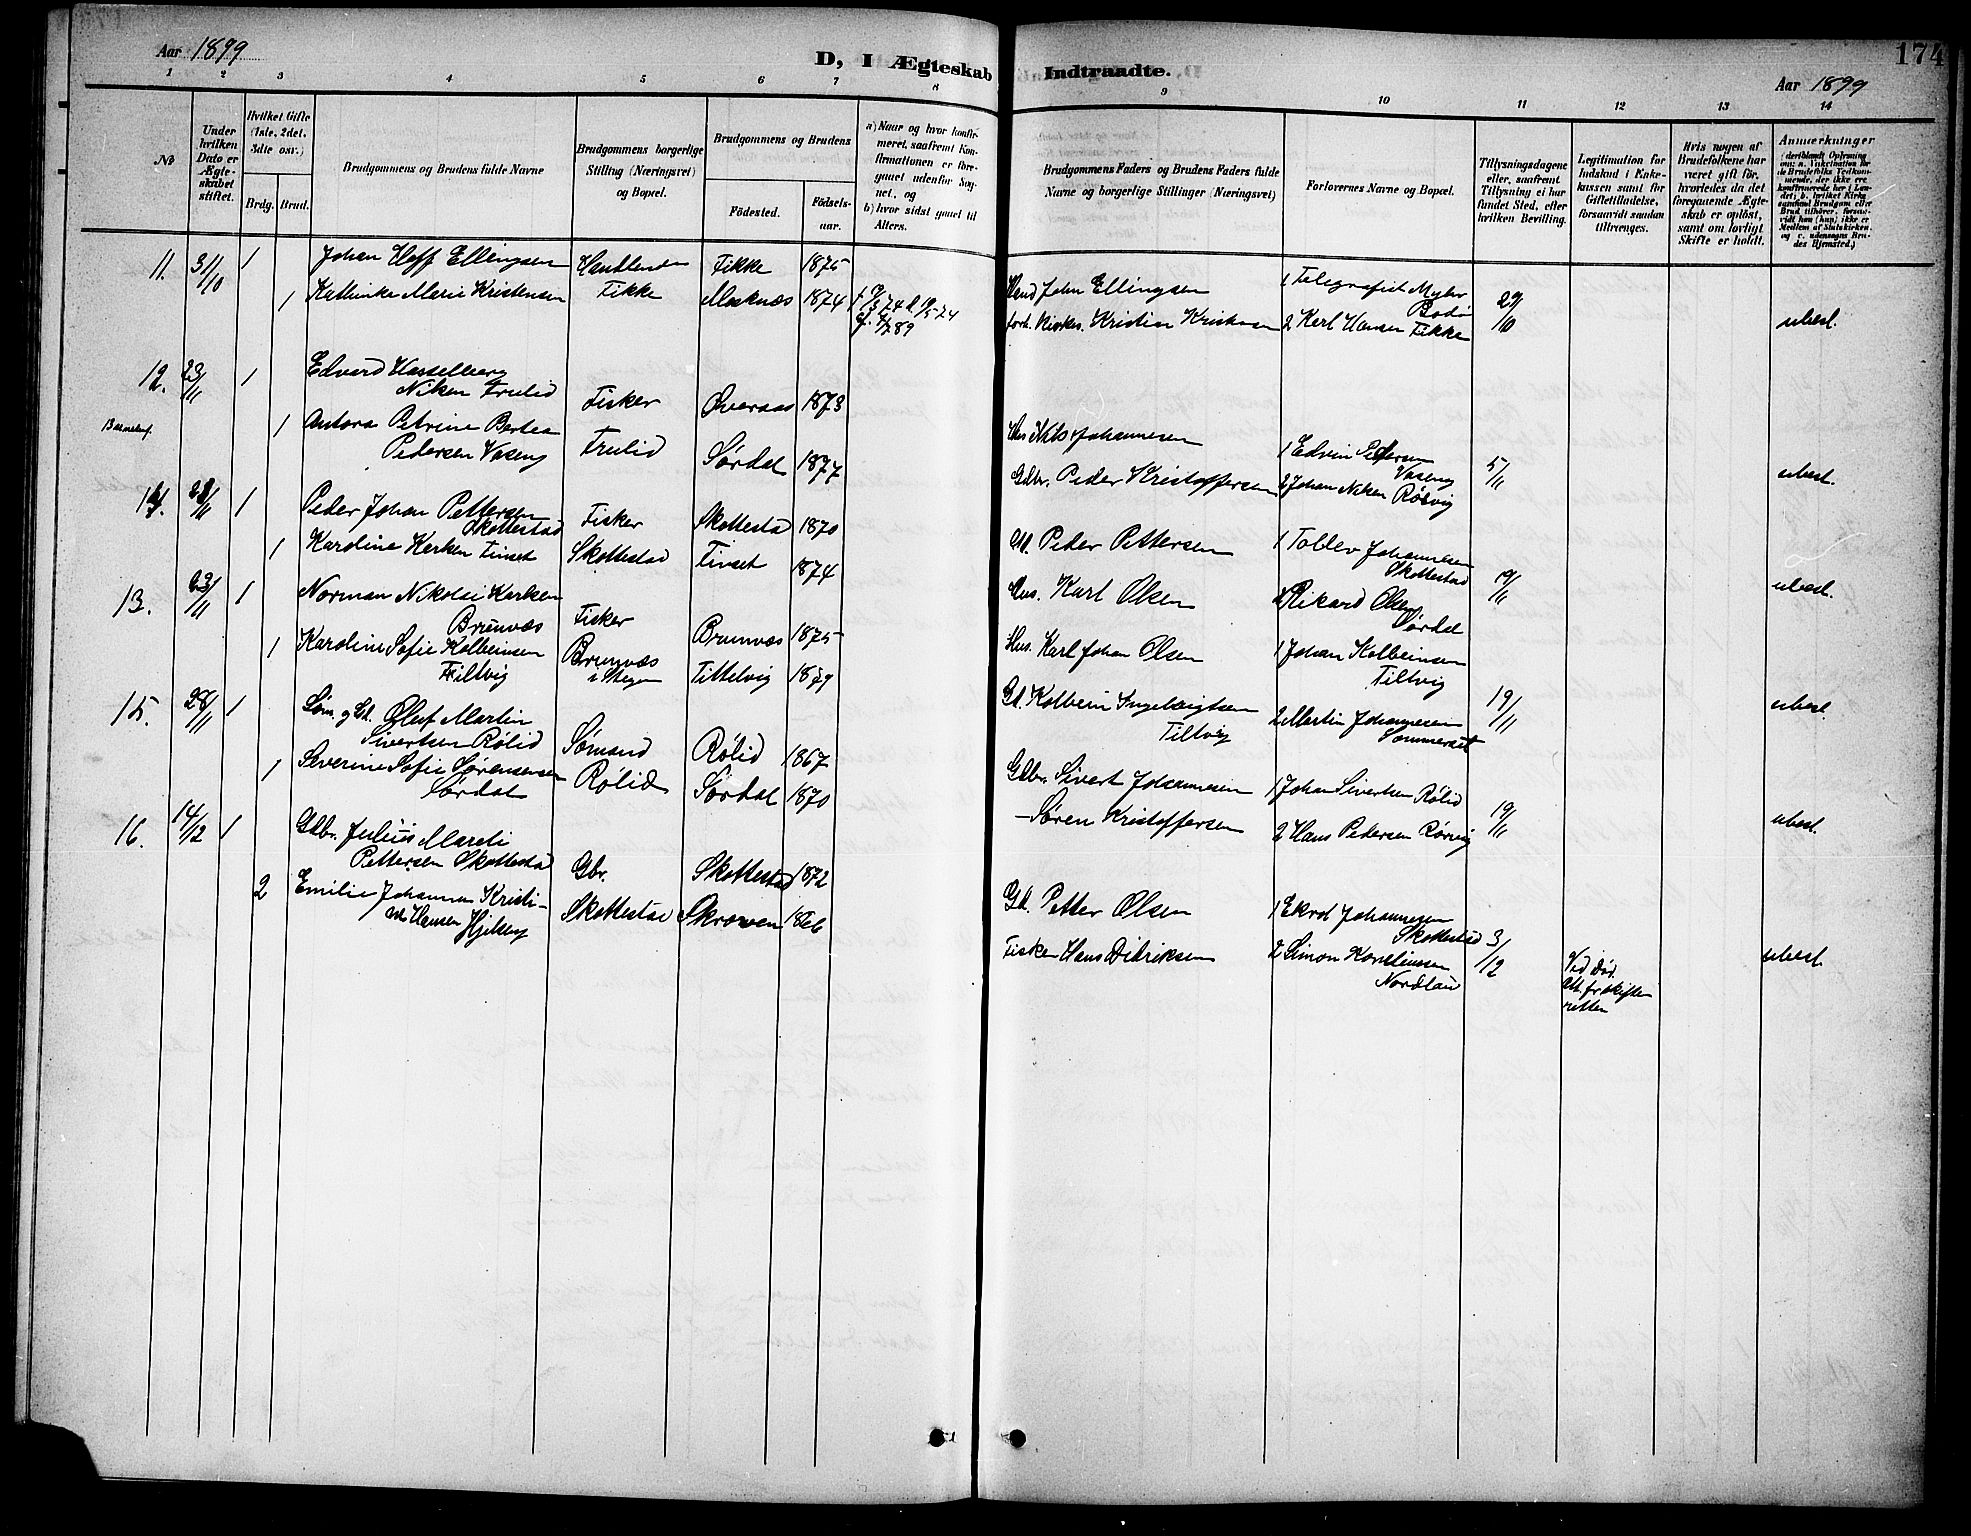 Aar 1899
D, I Ægteskab Indtraadte.
174
Aar 1899
1 2 3 4 5 6 7 8 9 10 11 12 13 14
No
Under hvilken Dato er Ægteskabet stiftet.
Hvilket Gifte (1ste, 2det, 3die osv.)
Brdg. Brud.
Brudgommens og Brudens fulde Navne
Brudgommens borgerlige Stilling (Næringsvei) og Bopæl.
Brudgommens og Brudens
Fødested.
Fødselsaar.
a) Naar og hvor konfirmeret, saafremt Konfirmationen er foregaaet udenfor Sognet, og
b) hvor sidst gaaet til Alters.
Brudgommens Faders og Brudens Faders fulde Navne og borgerlige Stillinger (Næringsvei)
Forlovernes Navne og Bopæl.
Tillysningsdagene eller, saafremt Tillysning ei har fundet Sted, efter hvilken Bevilling.
Legitimation for Indskud i Enkekassen samt for Giftetilladelse, forsaavidt saadan tiltrænges.
Hvis nogen af Brudefolkene har været gift før, hvorledes da det foregaaende Ægteskab er opløst, samt om lovligt Skifte er holdt.
Anmærkninger
11. 31/10 1 Johan Hoff Ellingsen Handlende Fikke 1875
1 Kathinka Marie Kristensen Fikke Mosknæs 1874
Hand John Ellingsen 1 Telegrafist Bodø 29/10
Kristian 2 Karl Hansen Fikke ubesl.
12. 23/11 1 Edvard Hasselberg
Niken Trulid Fisker Øveraas 1873
1 Antora Petrine Bertea
Pedersen Vaseng Trulid Sørdal 1877
Nils Johannesen 1 Edvin Pedersen
Vaseng 5/11
Gdbr. Peder Kristoffersen 2 Johan Niken Røsvig ubesl.
1 Peder Johan Pettersen
Skottestad Fisker Skottestad 1870
1 Karoline Kerken Tinset Skottestad Tinset 1874
Gd. Peder Pettersen 1 Tollev Johannesen
Skottestad 19/11
Hus. Karl Olsen 2 Rikard Olsen
Sørdal ubesl.
13. 23/11 1 Norman Nikolai Karken
Brunvæs Fisker Brunvæs 1875
1 Karoline Sofie Kolbeinsen
Tiltvig Brunvæs i Stegen Tittelvig 1879
Hus. Karl Johan Olsen 1 Johan Kolbeinsen
Tiltvig 19/11
Gd. Kolbein Ingebrigtsen
Tiltvig 2 Martin Johannesen
Sommerset ubesl.
15. 28/11 1 Søm. og Gd. Oluf Martin
Sivertsen Rølid Sømand Rølid 1867
1 Severine Sofie Sørensen
Sørdal Rølid Sørdal 1870
Gdbr. Sivert Johannesen 1 Johan Sivertsen Rølid 19/11
- Søren Kristoffersen 2 Hans Pedersen Rørvig ubesl.
16. 14/12 1 Gdbr. Julius Mareli
Pettersen Skottestad Gbr. Skottestad 1872
2 Emilie Johanna Kristi-
Hansen Hjelberg Skottestad Skroven 1866
Gd. Petter Olsen 1 Johannesen
Skottestad 3/12
Fisker Hans Didriksen 2 Simon
Nordlau Ved Død.
Att. fr. skifteretten ubesl.